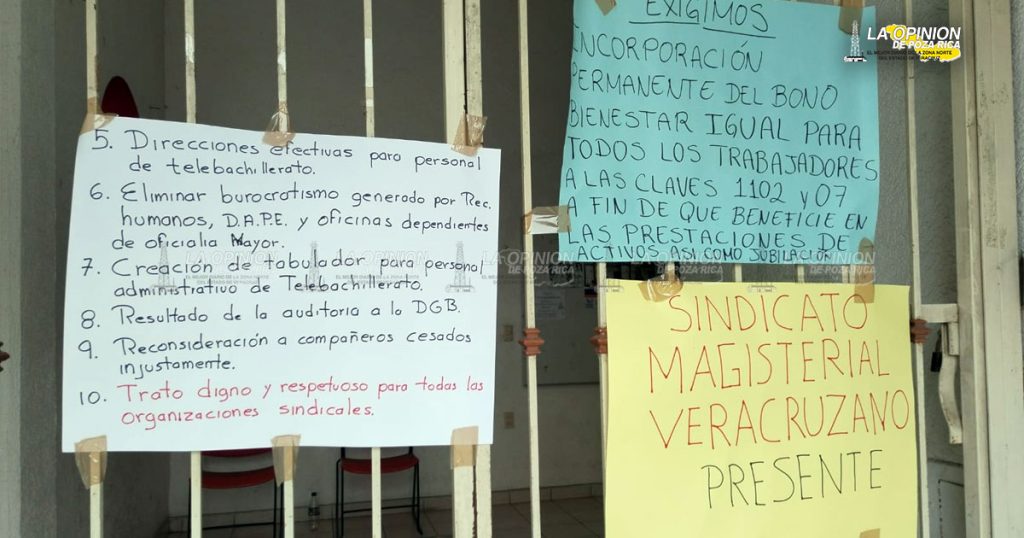 5. Direcciones efectivas para personal
de telebachillerato.
6. Eliminar burocratismo generado por Rec.
humanos, D.A.P.E. y oficinas dependientes
de oficialia Mayor.
7. Creación de tabulador para personal
administrativo de Telebachillerato.
8. Resultado de la auditoria a la DGB.
9. Reconsideración a compañeros cesados
injustamente.
10. Trato digno y respetuoso para todas las
organizaciones sindicales.
EXIGIMOS
INCORPORACIÓN
PERMANENTE DEL BONO
BIENESTAR IGUAL PARA
TODOS LOS TRABAJADORES
A LAS CLAVES 1102 y 07
A FIN DE QUE BENEFICIE EN
LAS PRESTACIONES DE
ACTIVOS ASI COMO JUBILACIÓN
SINDICATO
MAGISTERIAL
VERACRUZANO
PRESENTE
LA OPINION
DE POZA RICA
EL MEJOR DIARIO DE LA ZONA NORTE
DEL ESTADO DE VERACRUZ
LA OPINION
DE POZA RICA
LA OPINION
DE POZA RICA
LA OPINION
DE POZA RICA